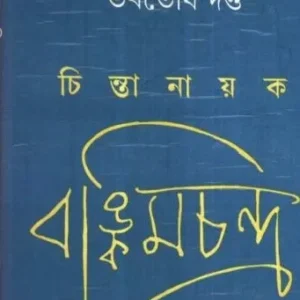 ভবতোষ দত্ত
চি ন্তা না য় ক
বঙ্কিমচন্দ্র